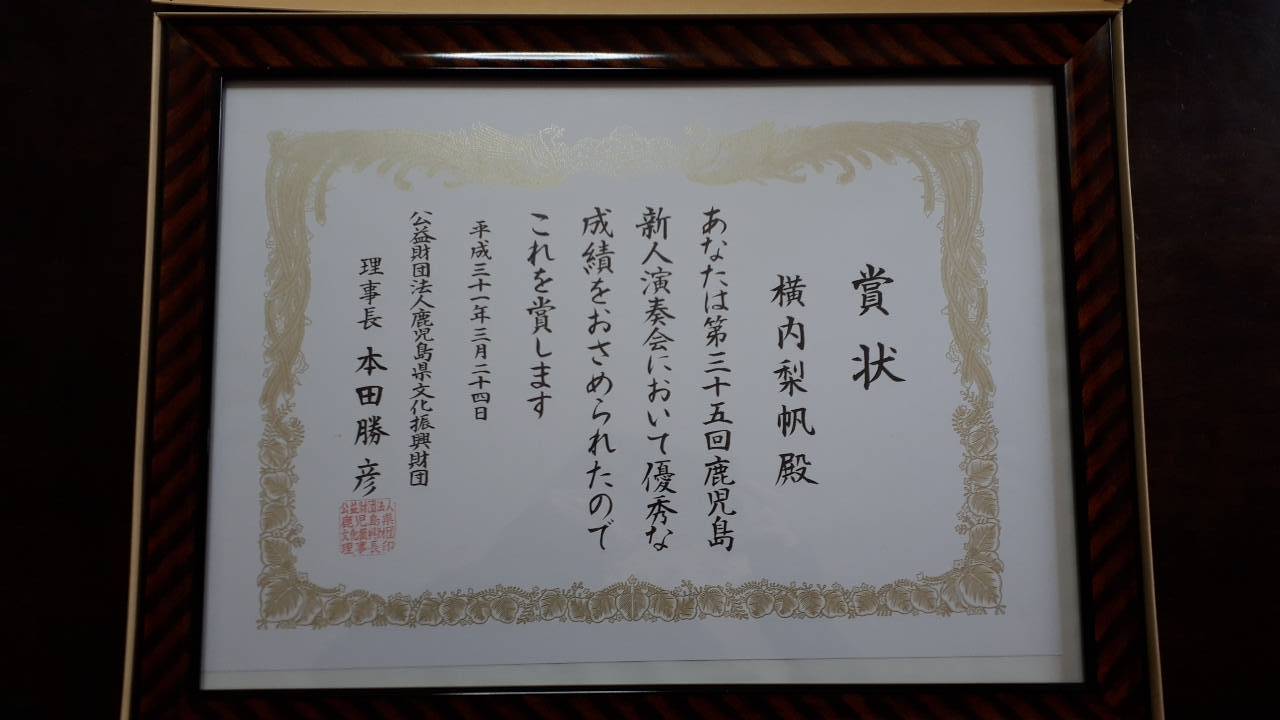 賞状
横内梨帆殿
あなたは第三十五回鹿児島
新人演奏会において優秀な
成績をおさめられたので
これを賞します
平成三十一年三月二十四日
公益財団法人鹿児島県文化振興財団
理事長 本田勝彦